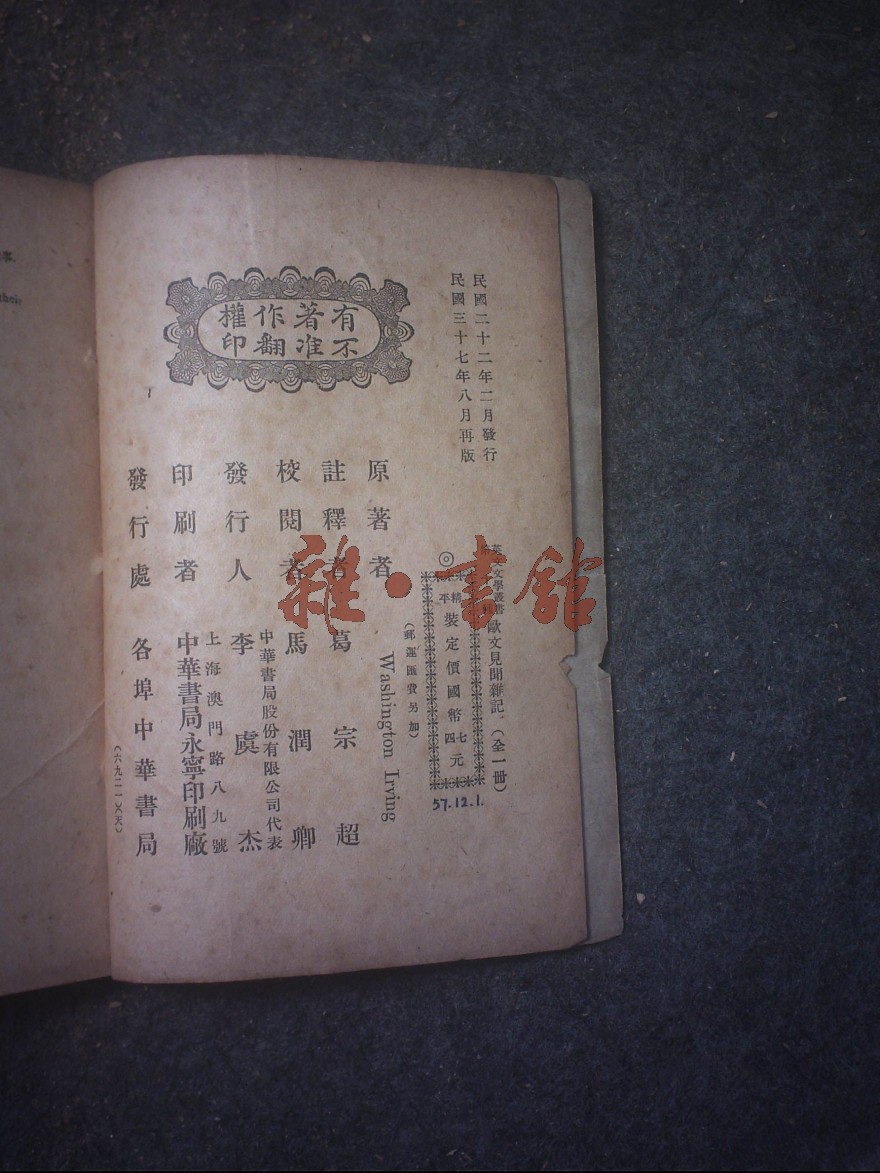 民國二十二年二月發行
民國三十七年八月再版
英文文學叢書
歐文見聞雜記(全一冊)
◎
平精
裝定價國幣
四七
元
(郵運匯費另加)
57.12.1.
有著作權
不准翻印
原著者 Washington Irving
註釋者 葛宗超
校閱者 馬潤卿
發行人 李虞杰
中華書局股份有限公司代表
印刷者 中華書局永寧印刷廠
上海澳門路八九號
發行處 各埠中華書局
雜·書館